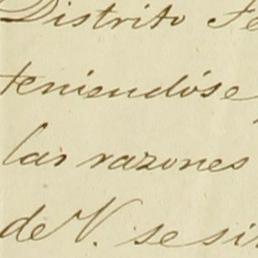 Distrito Fe
teniendóse
las razones
de V. se sir